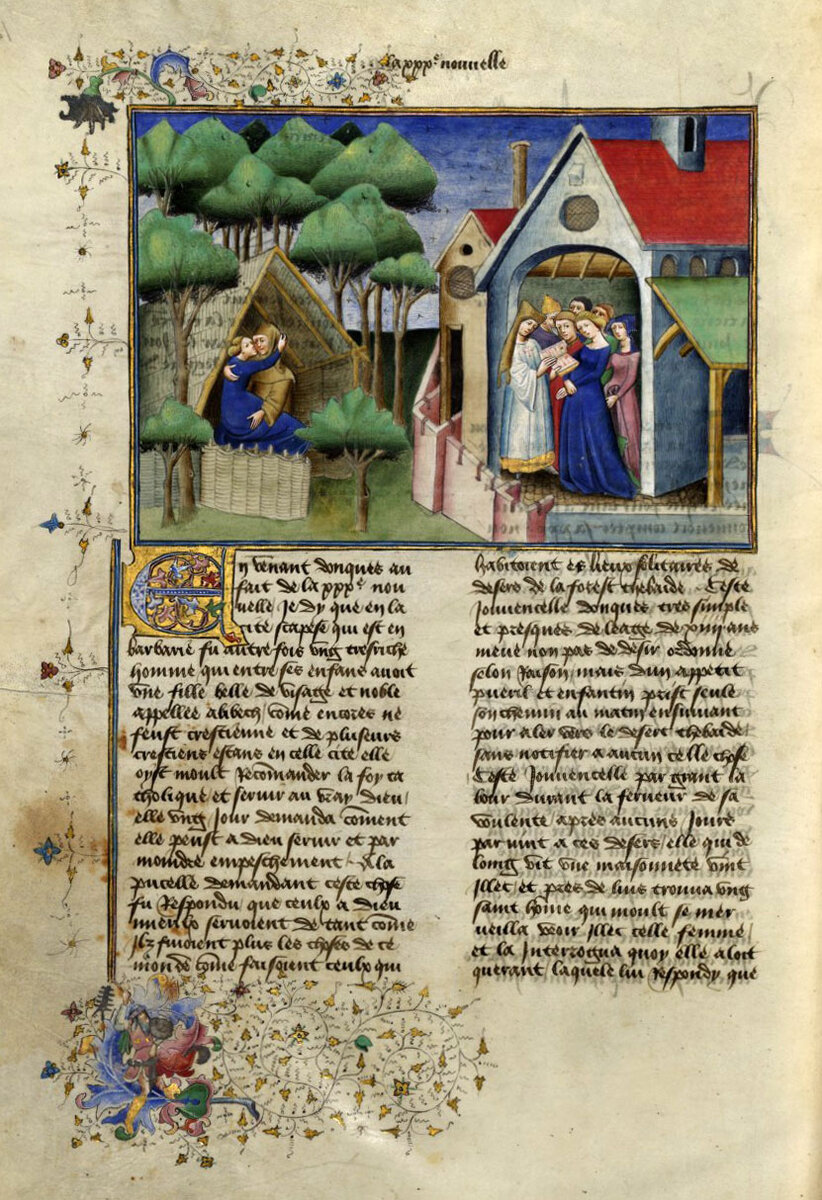 la xxx.e nouuelle
En venant donques au
fait de la xxx.e nou
uelle Je dy que en la
cite scapese qui est en
barbarie fu autre fois vng tresriche
homme qui entre ses enfans auoit
vne fille belle de visage et noble
appellee alibech come encores ne
feust crestienne et de pluseurs
crestiens estans en celle cite elle
oyst moult Recomander la foy ca
tholique et seruir au vray dieu
elle vng Jour demanda coment
elle peust a dieu seruir et par
moindre empeschement A la
pucelle demandant ceste chose
fu Respondu que ceulx a dieu
mieulx seruoient de tant come
Ilz fuioient plus les choses de ce
monde come faisoient ceulx qui
habitoient es lieux solitaires de
desers de la forest thebaide Ceste
Jouuencelle donques tres simple
et presques de leage de xiiii ans
meue non pas de desir ordonne
selon Raison mais dun appetit
pueril et enfantin prist seule
son chemin au matin ensuiuant
pour aler vers le desert thebaide
sans notifier a aucun celle chose
Ceste Jouuencelle par grant la
bour durant la ferueur de sa
voulente apres aucuns Jours
paruint a ces desers elle qui de
loing vit vne maisonnete vint
Illec et pres de luis trouua vng
saint home qui moult se mer
ueilla veoir Illec celle femme
et la Interrogua quoy elle aloit
querant laquele lui Respondy que